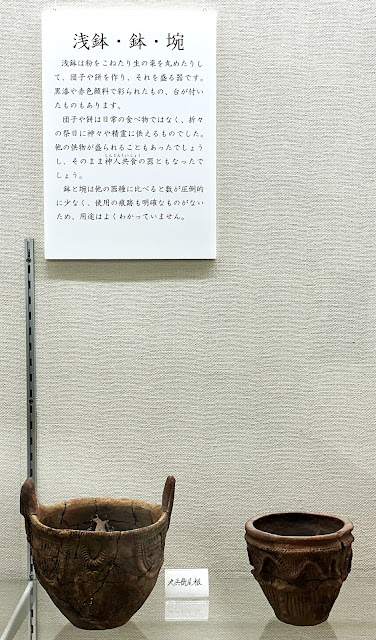 浅鉢・鉢・埦
浅鉢は粉をこねたり生の栗を丸めたりし
て、団子や餅を作り、それを盛る器です。
黒漆や赤色顔料で彩られたもの、台が付い
たものもあります。
団子や餅は日常の食べ物ではなく、折々
の祭日に神々や精霊に供えるものでした。
他の供物が盛られることもあったでしょう
し、そのまま神人共食の器ともなったで
しょう。
鉢と埦は他の器種に比べると数が圧倒的
に少なく、使用の痕跡も明確なものがない
ため、用途はよくわかっていません。